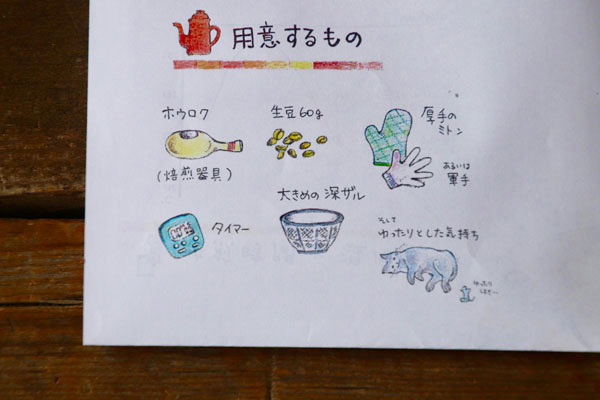 用意するもの
ホウロク
(焙煎器具)
生豆60g
厚手の
ミトン
あるいは
軍手
タイマー
大きめの深ザル
そして
ゆったりとした気持ち
ゆったり